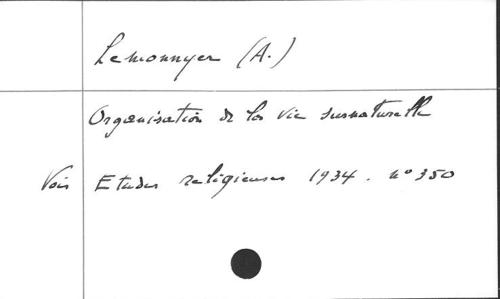 Lemonnyer (A.)
Organisation de la vie surnaturelle
Voir Etudes religieuses 1934. n° 350